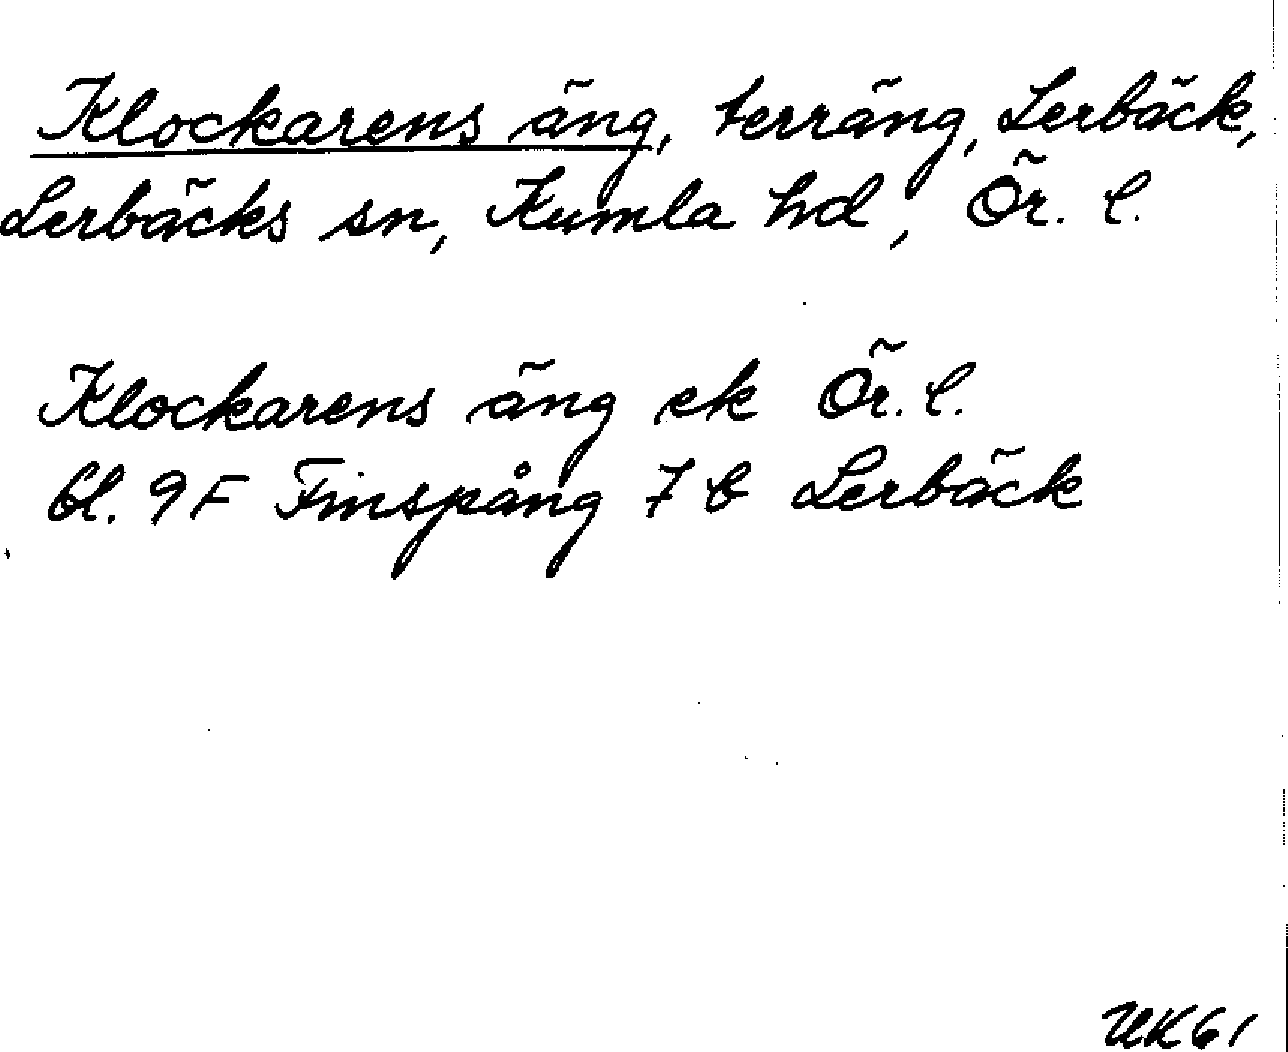 Klockarens äng, terräng, Lerbäck,
Lerbäcks sn, Kumla hd, Ör. l.
Klockarens äng ek Ör. l.
bl. 9F Finspång 7 b Lerbäck
UK61